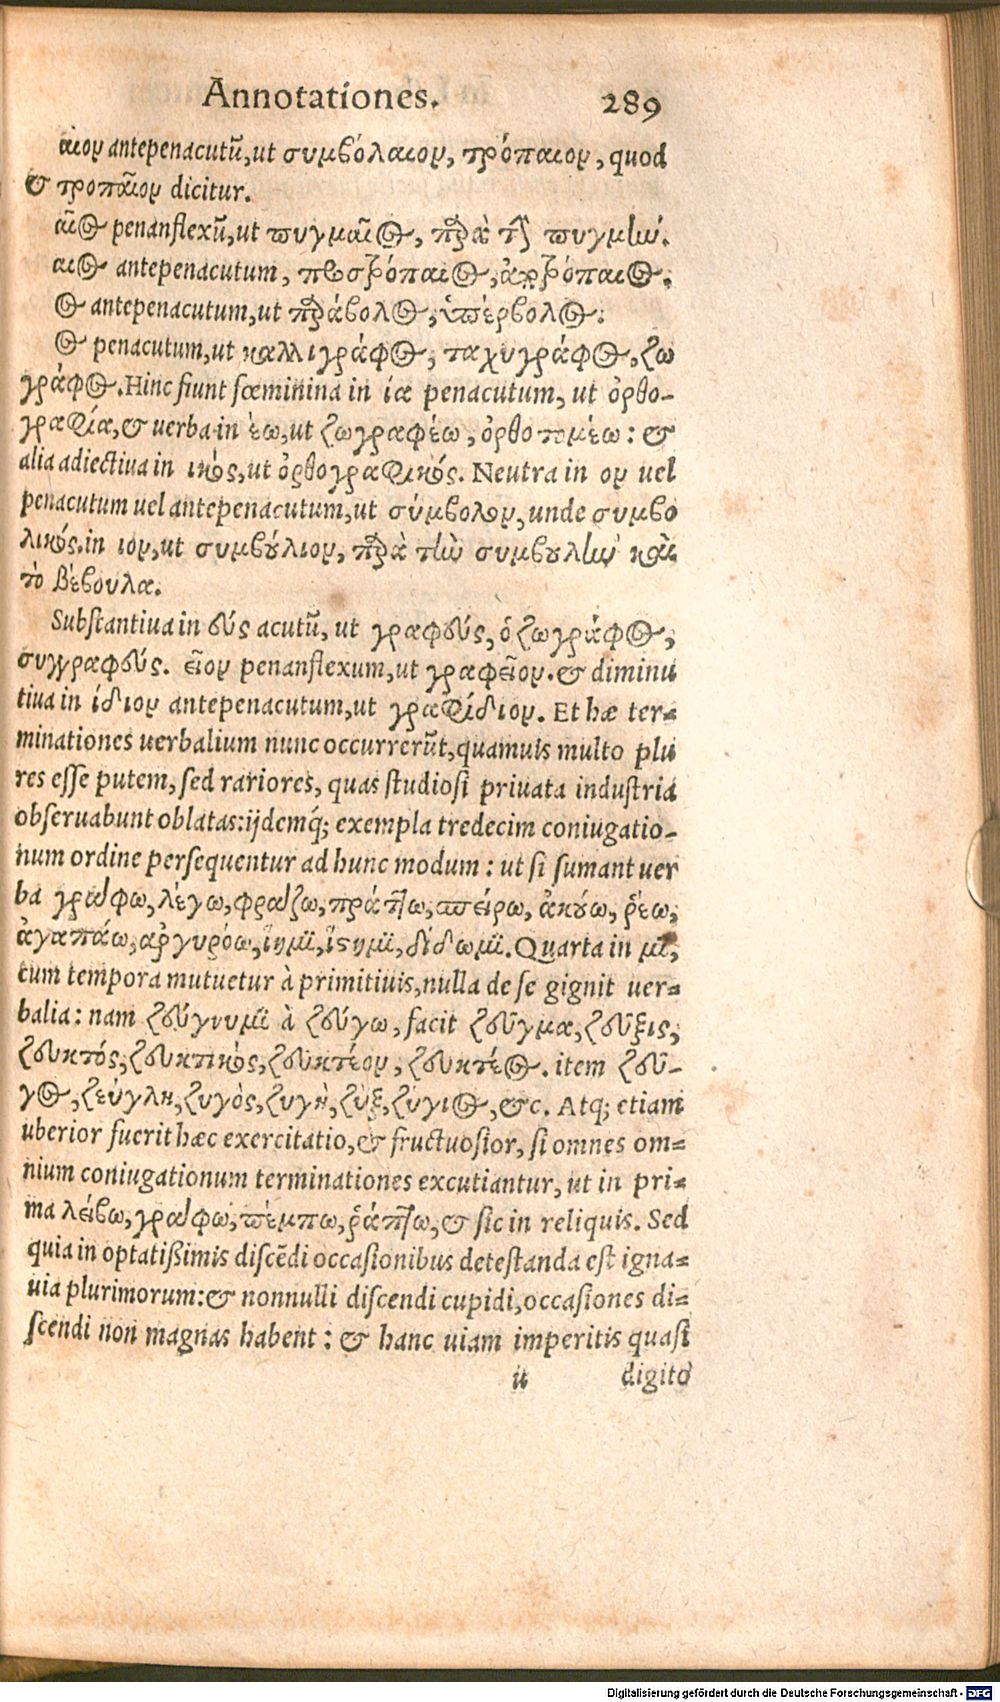 Annotationes. 289
αιον antepenacutū, ut συμβόλαιον, τρόπαιον, quod
& τροπαῖον dicitur.
αῖος penanflexū, ut πυγμαῖος, παρὰ τὴν πυγμήν.
αιος antepenacutum, προστρόπαιος, ἀποτρόπαιος.
ος antepenacutum, ut παράβολος, ὑπέρβολος.
ος penacutum, ut καλλιγράφος, ταχυγράφος, ζω
γράφος. Hinc fiunt fœminina in ία penacutum, ut ὀρθο-
γραφία, & verba in έω, ut ζωγραφέω, ὀρθοτομέω: &
alia adiectiua in ικός, ut ὀρθογραφικός. Neutra in ον uel
penacutum uel antepenacutum, ut σύμβολον, unde συμβο
λικός. in ιον, ut συμβούλιον, παρὰ τὴν συμβουλὴν καὶ
τὸ βέβουλα.
Substantiua in εύς acutū, ut γραφεύς, ὁ ζωγράφος,
συγγραφεύς. εῖον penanflexum, ut γραφεῖον. & diminu
tiua in ίδιον antepenacutum, ut γραφίδιον. Et hæ ter-
minationes uerbalium nunc occurrerūt, quamuis multo plu
res esse putem, sed rariores, quas studiosi priuata industria
obseruabunt oblatas: ijdemq́; exempla tredecim coniugatio-
num ordine persequentur ad hunc modum: ut si sumant uer
ba γράφω, λέγω, φράζω, πράττω, σπείρω, ἀκούω, ῥέω,
ἀγαπάω, αργυρόω, ἵημι, ἵστημι, δίδωμι. Quarta in μι,
cum tempora mutuetur à primitiuis, nulla de se gignit uer-
balia: nam ζεύγνυμι à ζεύγω, facit ζεῦγμα, ζεῦξις,
ζευκτός, ζευκτικὸς, ζευκτέον, ζευκτέος. item ζεῦ-
γος, ζεύγλη, ζυγὸς, ζυγὴ, ζὺξ, ζύγιος, &c. Atq; etiam
uberior fuerit hæc exercitatio, & fructuosior, si omnes om-
nium coniugationum terminationes excutiantur, ut in pri-
ma λείβω, γράφω, πέμπω, ῥάπτω, & sic in reliquis. Sed
quia in optatißimis discēdi occasionibus detestanda est igna-
uia plurimorum: & nonnulli discendi cupidi, occasiones di-
scendi non magnas habent: & hanc uiam imperitis quasi
u digito
Digitalisierung gefördert durch die Deutsche Forschungsgemeinschaft - DFG